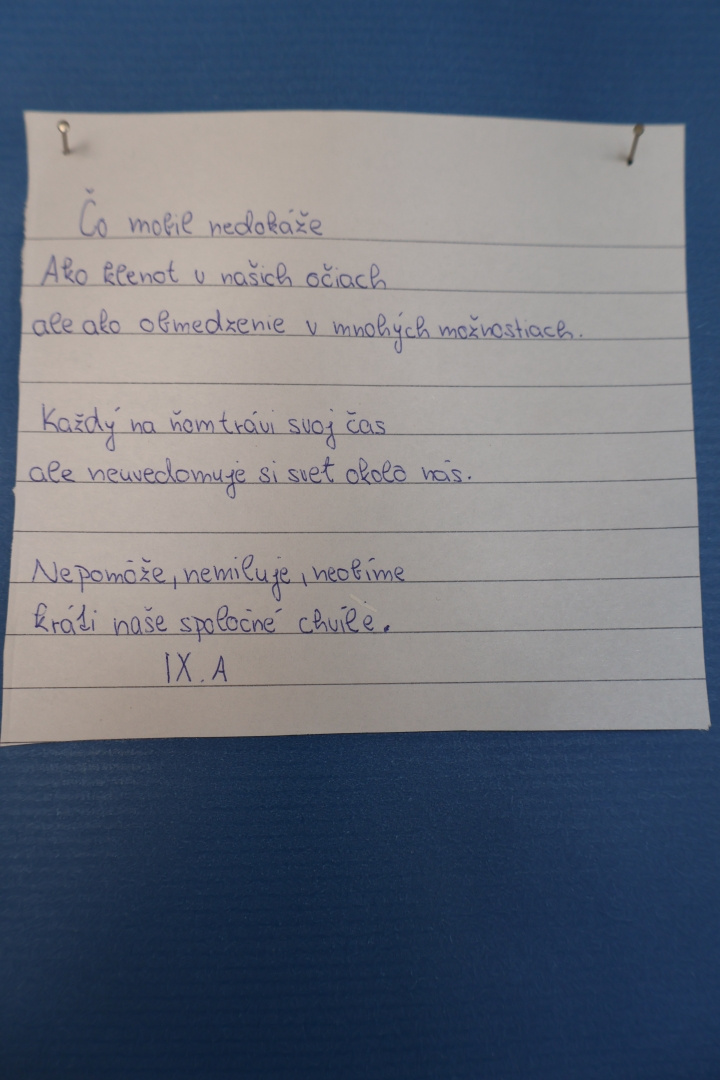 Čo mobil nedokáže
Ako klenot v našich očiach
ale ako obmedzenie v mnohých možnostiach.
Každý na ňom trávi svoj čas
ale neuvedomuje si svet okolo nás.
Nepomôže, nemiluje, neobíme
kráti naše spoločné chvíle.
IX. A